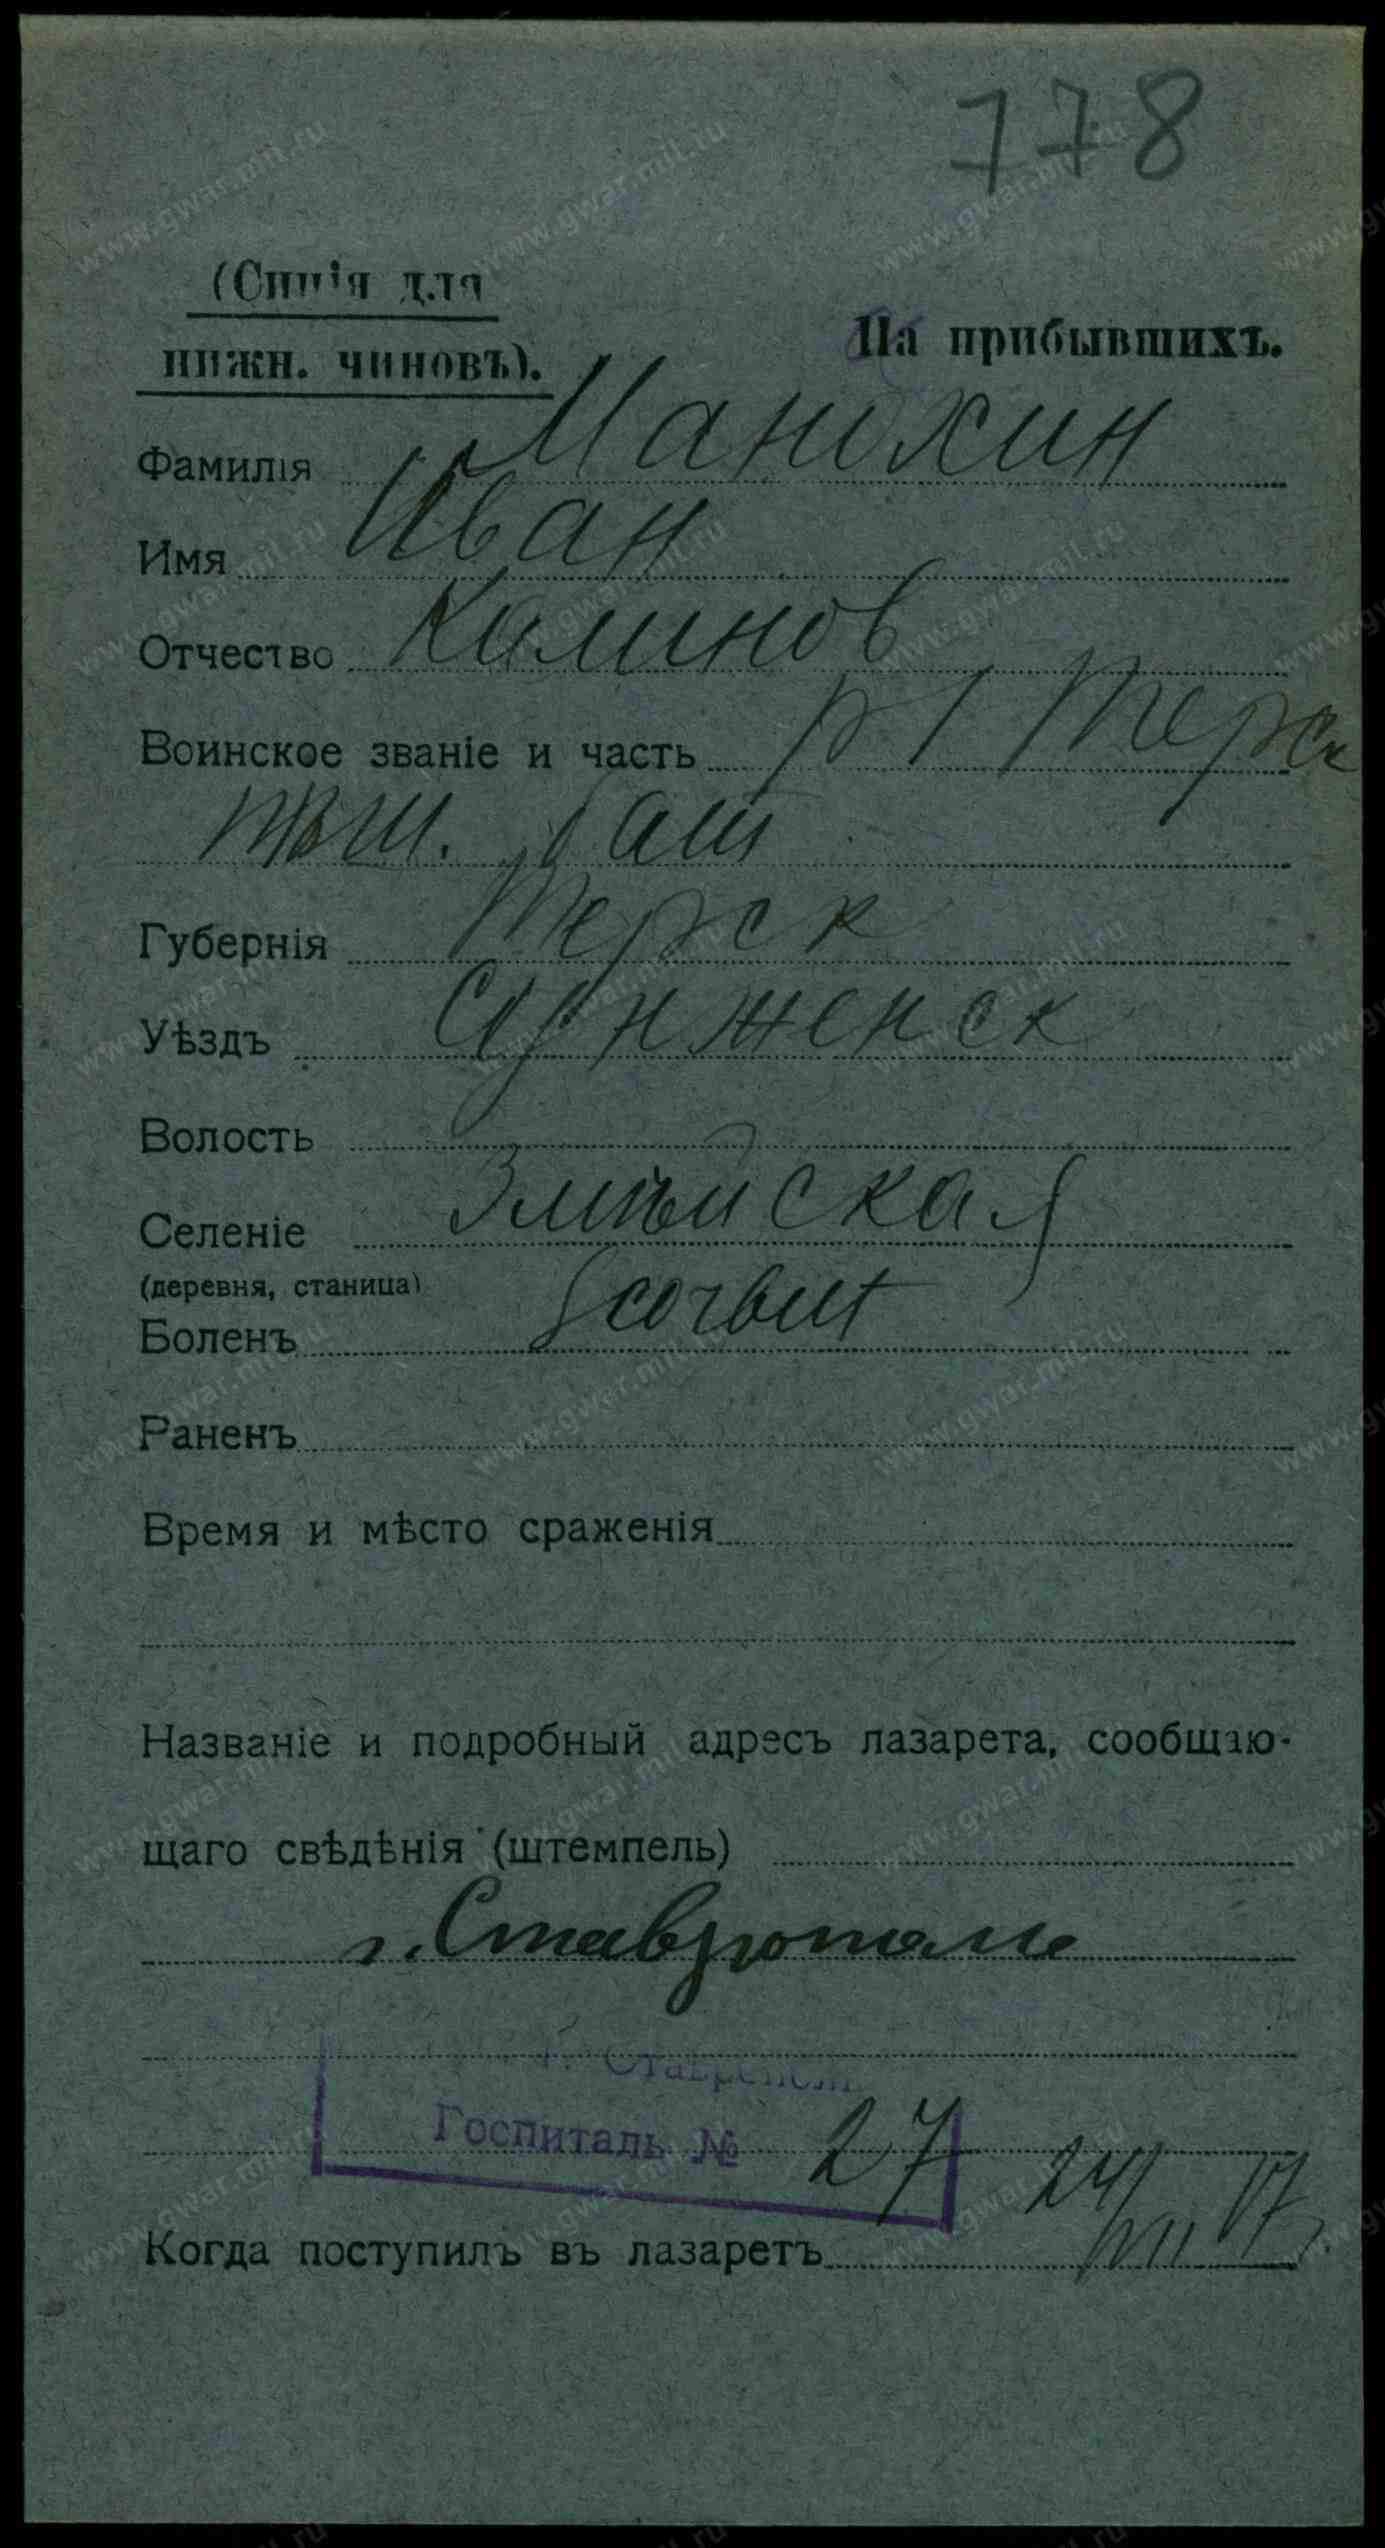 778
(Синія для
нижн. чиновъ).
На прибывшихъ.
Фамилія Манохин
Имя Иван
Отчество Калинов
Воинское званіе и часть р 1 Терск
пласт. бат
Губернія Терск
Уѣздъ Сунженск
Волость
Селеніе Змѣйская
(деревня, станица)
Боленъ Scorbut
Раненъ
Время и мѣсто сраженія
Названіе и подробный адресъ лазарета, сообщаю-
щаго свѣдѣнія (штемпель)
г. Ставрополь
г. Ставрополь
Госпиталь № 27
24/VII 17 г.
Когда поступилъ въ лазаретъ